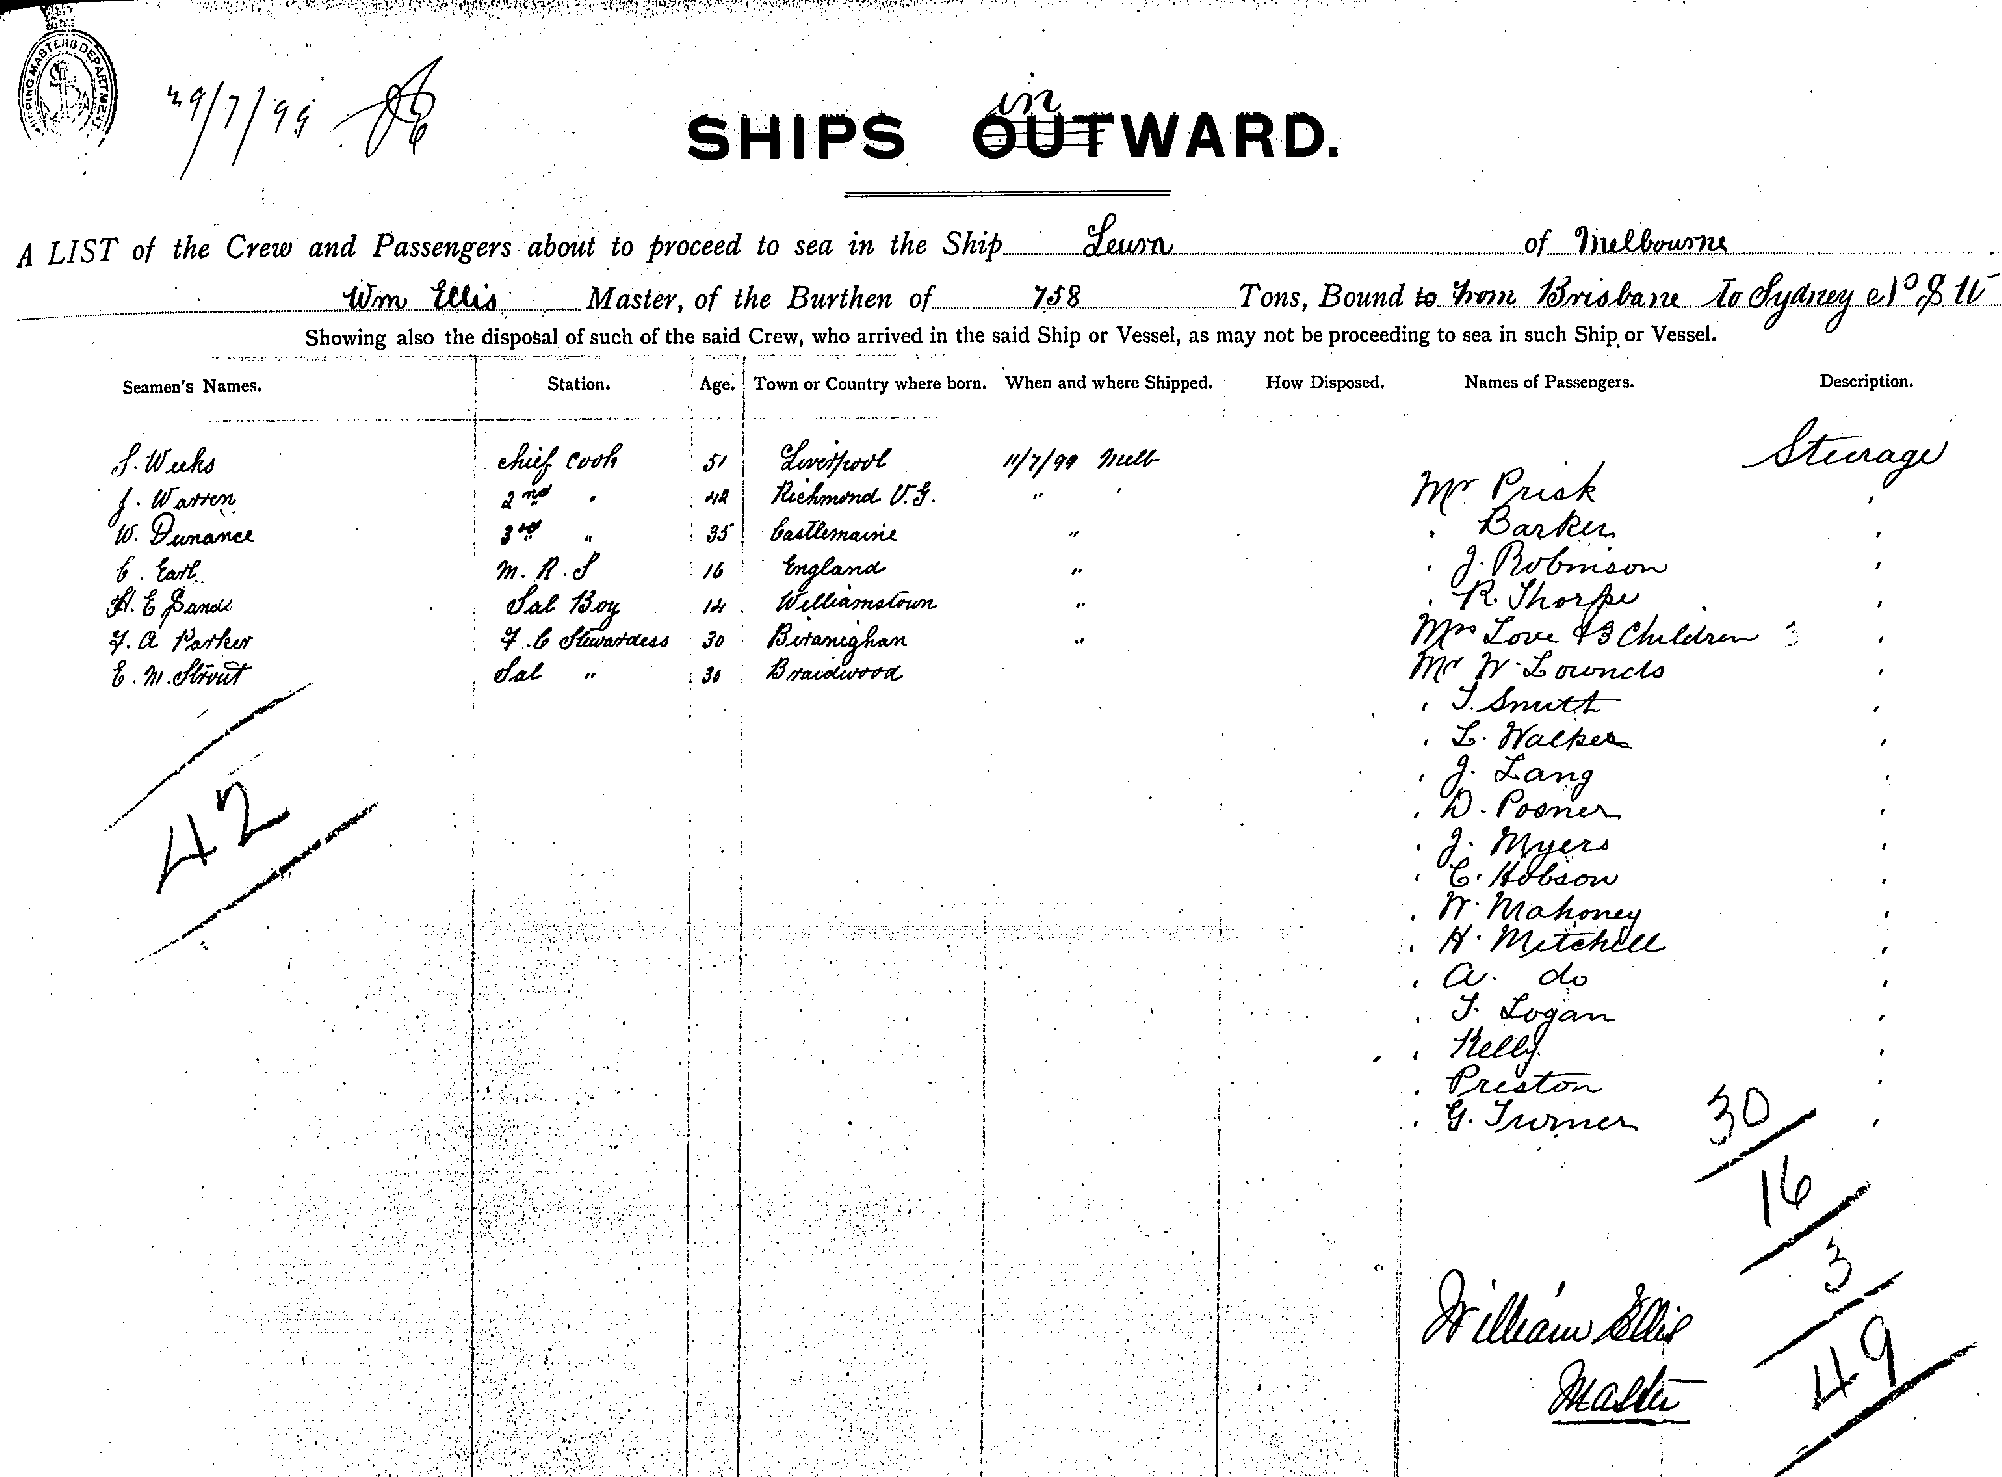 SHIPPING MASTERS DEPARTMENT
29/7/99
in
SHIPS OUTWARD.
A LIST of the Crew and Passengers about to proceed to sea in the Ship Leura of Melbourne
Wm Ellis Master, of the Burthen of 758 Tons, Bound to from Brisbane To Sydney N S W
Showing also the disposal of such of the said Crew, who arrived in the said Ship or Vessel, as may not be proceeding to sea in such Ship or Vessel.
Seamen's Names. Station. Age. Town or Country where born. When and where Shipped. How Disposed. Names of Passengers. Description.
S. Weeks chief Cook 51 Liverpool 11/7/99 Melb Steerage
J. Warren 2nd " 42 Richmond V.G. " " Mr Prisk "
W. Dunance 3rd " 35 Castlemaine " " Barker "
C. Earl M. R. S 16 England " " J. Robinson "
H. E Sands Sal Boy 14 Williamstown " " R. Thorpe "
F. A Parker F. C Stewardess 30 Birmighan " Mrs Love & 3 Children 3 "
E. M. Strout Sal " 30 Braidwood Mr W. Lownds "
" T. Smith "
" L. Walker "
" J. Lang "
42 " D. Posner "
" J. Myers "
" C. Hobson "
" W. Mahoney "
" H. Mitchell "
" A. do "
" T. Logan "
" Kelly "
" Preston "
" G. Turner "
30
16
3
49
William Ellis
Master